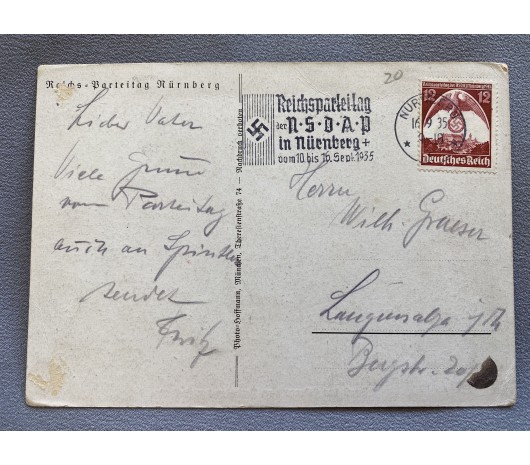 Reichs-Parteitag Nürnberg
Lieber Vater
Viele Grüsse
vom Parteitag
auch an
sendet
Fritz
Photo-Hoffmann, München, Theresienstraße 74 — Nachdruck verboten
20
Reichsparteitag
der N·S·D·A·P
in Nürnberg +
vom 10. bis 16. Sept. 1935
NÜRNBERG
16.9.35
12 12
Deutsches Reich
Herrn
Wilh. Graeser
Langensalza i/Th
Bergstr.